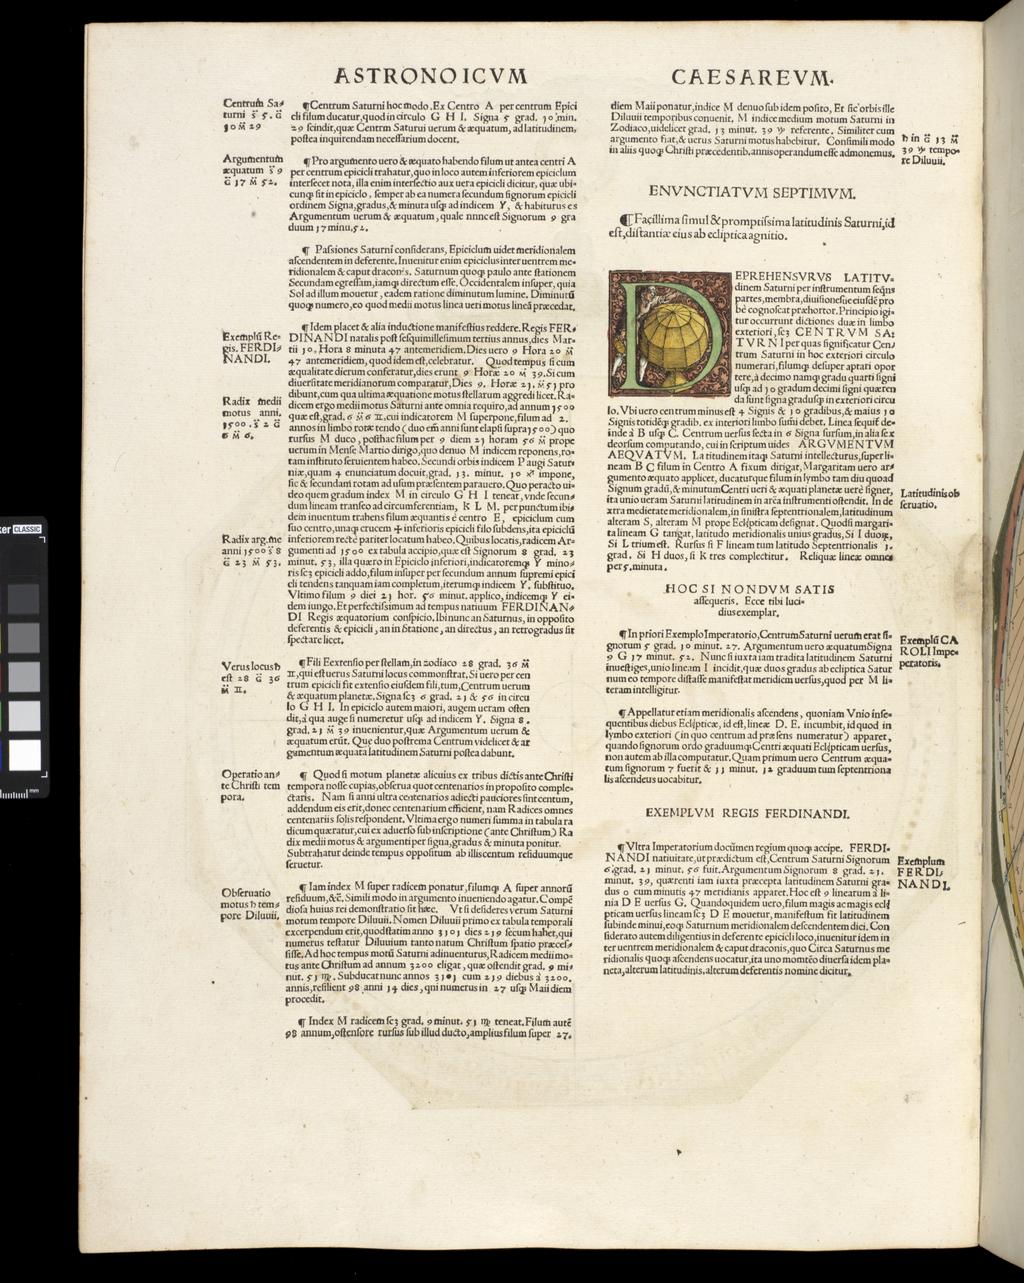 ASTRONOICVM
CAESAREVM.
Centrum Sa⸗
turni s̈ 5. G̈
30 M̈ 29
¶Centrum Saturni hoc modo. Ex Centro A per centrum Epici
cli filum ducatur, quod in circulo G H I. Signa 5 grad. 30 min.
29 scindit, quæ Centrm Saturui uerum & æquatum, ad latitudinem,
postea inquirendam necessarium docent.
Argumentum
æquatum s̈ 9
G̈ 17 M̈ 52.
¶ Pro argumento uero & æquato habendo filum ut antea centri A
per centrum epicicli trahatur, quo in loco autem inferiorem epiciclum
intersecet nota, illa enim intersectio aux uera epicicli dicitur, quæ ubi⸗
cunq̃ sit in epiciclo, semper ab ea numera secundum signorum epicicli
ordinem Signa, gradus, & minuta usq̃ ad indicem Y, & habiturus es
Argumentum uerum & æquatum, quale nnnc est Signorum 9 gra
duum 17 minu. 52.
¶ Passiones Saturni considerans, Epiciclum uidet meridionalem
ascendentem in deferente. Inuenitur enim epiciclus inter uentrem me⸗
ridionalem & caput draconis. Saturnum quoq̃ paulo ante stationem
Secundam egressam, iamq̃ directum esse. Occidentalem insuper, quia
Sol ad illum mouetur, eadem ratione diminutum lumine. Diminutũ
quoq̃ numero, eo quod medii motus linea ueri motus lineã præcedat.
Exemplũ Re⸗
gis. FERDI⸗
NANDI.
¶ Idem placet & alia inductione manifestius reddere. Regis FER⸗
DINANDI natalis post sesquimillesimum tertius annus, dies Mar⸗
tii 10. Hora 8 minuta 47 antemeridiem. Dies uero 9 Hora 20 M̈
47 antemeridiem, quod idem est, celebratur. Quod tempus si cum
æqualitate dierum conferatur, dies erunt 9 Horæ 20 M̈ 39. Si cum
diuersitate meridianorum comparatur, Dies 9. Horæ 21. M̈ 51 pro
dibunt, cum qua ultima æquatione motus stellarum aggredi licet. Ra⸗
Radix medii
motus anni.
1500. s̈ 2 G̈
6 M̈ 6.
dicem ergo medii motus Saturni ante omnia requiro, ad annum 1500
quæ est, grad. 6 M̈ 6 ♊, cui indicatorem M superpone, filum ad 2.
annos in limbo rotæ tendo (duo em̃ anni sunt elapsi supra 1500) quo
rursus M duco, posthac filum per 9 diem 21 horam 56 M̈ prope
uerum in Mense Martio dirigo, quo denuo M indicem reponens, ro⸗
tam instituto seruientem habeo. Secundi orbis indicem P augi Satur⸗
niæ, quam 4 enunciatum docuit, grad. 13. minut. 10 ♐ impone,
sic & secundam rotam ad usum præsentem parauero. Quo peracto ui⸗
deo quem gradum index M in circulo G H I teneat, vnde secun⸗
dum lineam transfeo ad circumferentiam, K L M. per punctum ibi⸗
dem inuentum trahens filum æquantis è centro E, epiciclum cum
suo centro, unaq̃ crucem + inferioris epicicli filo subdens, ita epiciclũ
Radix arg. me
anni 1500 s̈ 8
G̈ 23 M̈ 53.
inferiorem rectè pariter locatum habeo. Quibus locatis, radicem Ar⸗
gumenti ad 1500 ex tabula accipio, quæ est Signorum 8 grad. 23
minut. 53, illa quæro in Epiciclo inferiori, indicatoremq̃ Y mino⸗
ris scʒ epicicli addo, filum insuper per secundum annum supremi epici
cli tendens tanquam iam completum, iterumq̃ indicem Y. substituo.
Vltimo filum 9 diei 21 hor. 56 minut. applico, indicemq̃ Y ei⸗
dem iungo. Et perfectissimum ad tempus natiuum FERDINAN⸗
DI Regis æquatorium conspicio. Ibi nunc an Saturnus, in opposito
deferentis & epicicli, an in Statione, an directus, an retrogradus sit
spectare licet.
Verus locus ♄
est 28 G̈ 36
M̈ ♊.
¶Fili E extensio per stellam, in zodiaco 28 grad. 36 M̈
♊, qui est uerus Saturni locus commonstrat. Si uero per cen
trum epicicli fit extensio eiusdem fili, tum, Centrum uerum
& æquatum planetæ. Signa scʒ 6 grad. 21 & 56 in circu
lo G H I. In epiciclo autem maiori, augem ueram osten
dit, à qua auge si numeretur usq̃ ad indicem Y. Signa 8.
grad. 21 M̈ 39 inuenientur, quæ Argumentum uerum &
æquatum erũt. Que duo postrema Centrum videlicet & ar
gumentum æquata latitudinem Saturni postea dabunt.
Operatio an⸗
te Christi tem
pora.
¶ Quod si motum planetæ alicuius ex tribus dictis ante Christi
tempora nosse cupias, obserua quot centenarios in proposito comple⸗
ctaris. Nam si anni ultra centenarios adiecti pauciores sint centum,
addendum eis erit, donec centenarium efficient, nam Radices omnes
centenariis solis respondent. Vltima ergo numeri summa in tabula ra
dicum quæratur, cui ex aduerso sub inscriptione (ante Christum) Ra
dix medii motus & argumenti per signa, gradus & minuta ponitur.
Subtrahatur deinde tempus oppositum ab illis centum residuumque
seruetur.
Obseruatio
motus ♄ tem⸗
pore Diluuii.
¶ Iam index M super radicem ponatur, filumq̃ A super annorũ
residuum, &c̃. Simili modo in argumento inueniendo agatur. Compẽ
diosa huius rei demonstratio sit hæc. Vt si desideres verum Saturni
motum tempore Diluuii. Nomen Diluuii primo ex tabula temporali
excerpendum erit, quod statim anno 3101 dies 219 secum habet, qui
numerus testatur Diluuium tanto natum Christum spatio præces⸗
sisse. Ad hoc tempus motũ Saturni adinuenturus, Radicem medii mo⸗
tus ante Christum ad annum 3200 eligat, quæ ostendit grad. 9 mi⸗
nut. 51 ♍. Subducat nunc annos 3101 cum 219 diebus à 3200.
annis, resilient 98 anni 14 dies, qui numerus in 27 usq̃ Maii diem
procedit.
¶ Index M radicem scʒ grad. 9 minut. 51 ♍ teneat. Filum autẽ
98 annum, ostensore rursus sub illud ducto, amplius filum super 27.
diem Maii ponatur, indice M denuo sub idem posito, Et sic orbis ille
Diluuii temporibus conuenit. M indice medium motum Saturni in
Zodiaco, uidelicet grad. 13 minut. 39 ♑ referente. Similiter cum
argumento fiat, & uerus Saturni motus habebitur. Consimili modo
in aliis quoq̃ Christi præcedentib. annis operandum esse admonemus.
♄ in G̈ 13 M̈
39 ♑ tempo⸗
re Diluuii.
ENVNCTIATVM SEPTIMVM.
¶ Facillima simul & promptissima latitudinis Saturni, id
est, distantiæ eius ab ecliptica agnitio.
DEPREHENSVRVS LATITV⸗
dinem Saturni per instrumentum seq̃ns
partes, membra, diuisionesue eiusdẽ pro
bè cognoscat præhortor. Principio igi⸗
tur occurrunt dictiones duæ in limbo
exteriori, scʒ CENTRVM SA⸗
TVRNI per quas significatur Cen⸗
trum Saturni in hoc exteriori circulo
numerari, filumq̃ desuper aptari opor
tere, à decimo namq̃ gradu quarti signi
usq̃ ad 10 gradum decimi signi quæren
da sunt signa gradusq̃ in exteriori circu
lo. Vbi uero centrum minus est 4 Signis & 10 gradibus, & maius 10
Signis totidẽq̃ gradib. ex interiori limbo sumi debet. Linea sequit̃ de⸗
inde à B usq̃ C. Centrum uersus secta in 6 Signa sursum, in alia sex
deorsum computando, cui in scriptum uides ARGVMENTVM
AEQVATVM. Latitudinem itaq̃ Saturni intellecturus, super li⸗
neam B C filum in Centro A fixum dirigat, Margaritam uero ar⸗
gumento æquato applicet, ducaturque filum in lymbo tam diu quoad
Signum gradũ, & minutum Centri ueri & æquati planetæ uerè signet,
Latitudinis ob
seruatio.
ita unio ueram Saturni latitudinem in area instrumenti ostendit. In de
xtra medietate meridionalem, in sinistra septentrionalem, latitudinum
alteram S, alteram M prope Eclipticam designat. Quodsi margari⸗
ta lineam G tangat, latitudo meridionalis unius gradus, Si I duorum,
Si L trium est. Rursus si F lineam tum latitudo Septentrionalis 1.
grad. Si H duos, si K tres complectitur. Reliquæ lineæ omnes
per 5. minuta.
HOC SI NONDVM SATIS
assequeris. Ecce tibi luci⸗
dius exemplar.
¶In priori Exemplo Imperatorio, Centrum Saturni uerum erat si⸗
gnorum 5 grad. 30 minut. 27. Argumentum uero æquatum Signa
9 G 17 minut. 52. Nunc si iuxta iam tradita latitudinem Saturni
inuestiges, unio lineam I incidit, quæ duos gradus ab ecliptica Satur
num eo tempore distasse manifestat meridiem uersus, quod per M li⸗
teram intelligitur.
Exemplũ CA
ROLI Impe⸗
peratoris.
¶Appellatur etiam meridionalis ascendens, quoniam Vnio inse⸗
quentibus diebus Eclipticæ, id est, lineæ D. E. incumbit, id quod in
lymbo exteriori (in quo centrum ad præsens numeratur) apparet,
quando signorum ordo graduumq̃ Centri æquati Eclipticam uersus,
non autem ab illa computatur. Quam primum uero Centrum æqua⸗
tum signorum 7 fuerit & 11 minut. 12 graduum tum septentriona
lis ascendeus uocabitur.
EXEMPLVM REGIS FERDINANDI.
¶Vltra Imperatorium documen regium quoq̃ accipe. FERDI⸗
NANDI natiuitate, ut prædictum est, Centrum Saturni Signorum
6 grad. 21 minut. 56 fuit. Argumentum Signorum 8 grad. 21.
minut. 39, quærenti iam iuxta præcepta latitudinem Saturni gra⸗
dus 0 cum minutis 47 meridianis apparet. Hoc est 9 linearum à li⸗
nia D E uersus G. Quandoquidem uero, filum magis ac magis ecli
pticam uersus lineam scʒ D E mouetur, manifestum sit latitudinem
subinde minui, eoq̃ Saturnum meridionalem descendentem dici. Con
siderato autem diligentius in deferente epicicli loco, inuenitur idem in
ter uentrem meridionalem & caput draconis, quo Circa Saturnus me
ridionalis quoq̃ ascendens uocatur, ita uno momẽto diuersa idem pla⸗
neta, alterum latitudinis, alterum deferentis nomine dicitur.
Exemplum
FERDI⸗
NANDI.
ker CLASSIC
mm